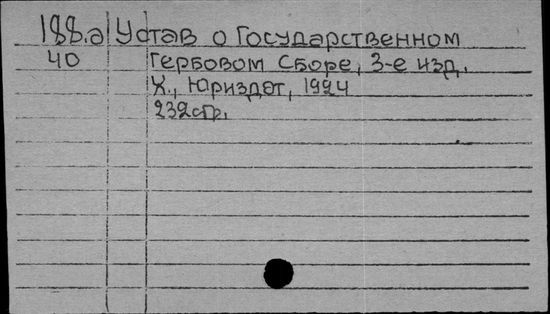 188.а Устав о Государственном
40 Гербовом Сборе, 3-е изд.
Х., Юриздат, 1924
232стр.